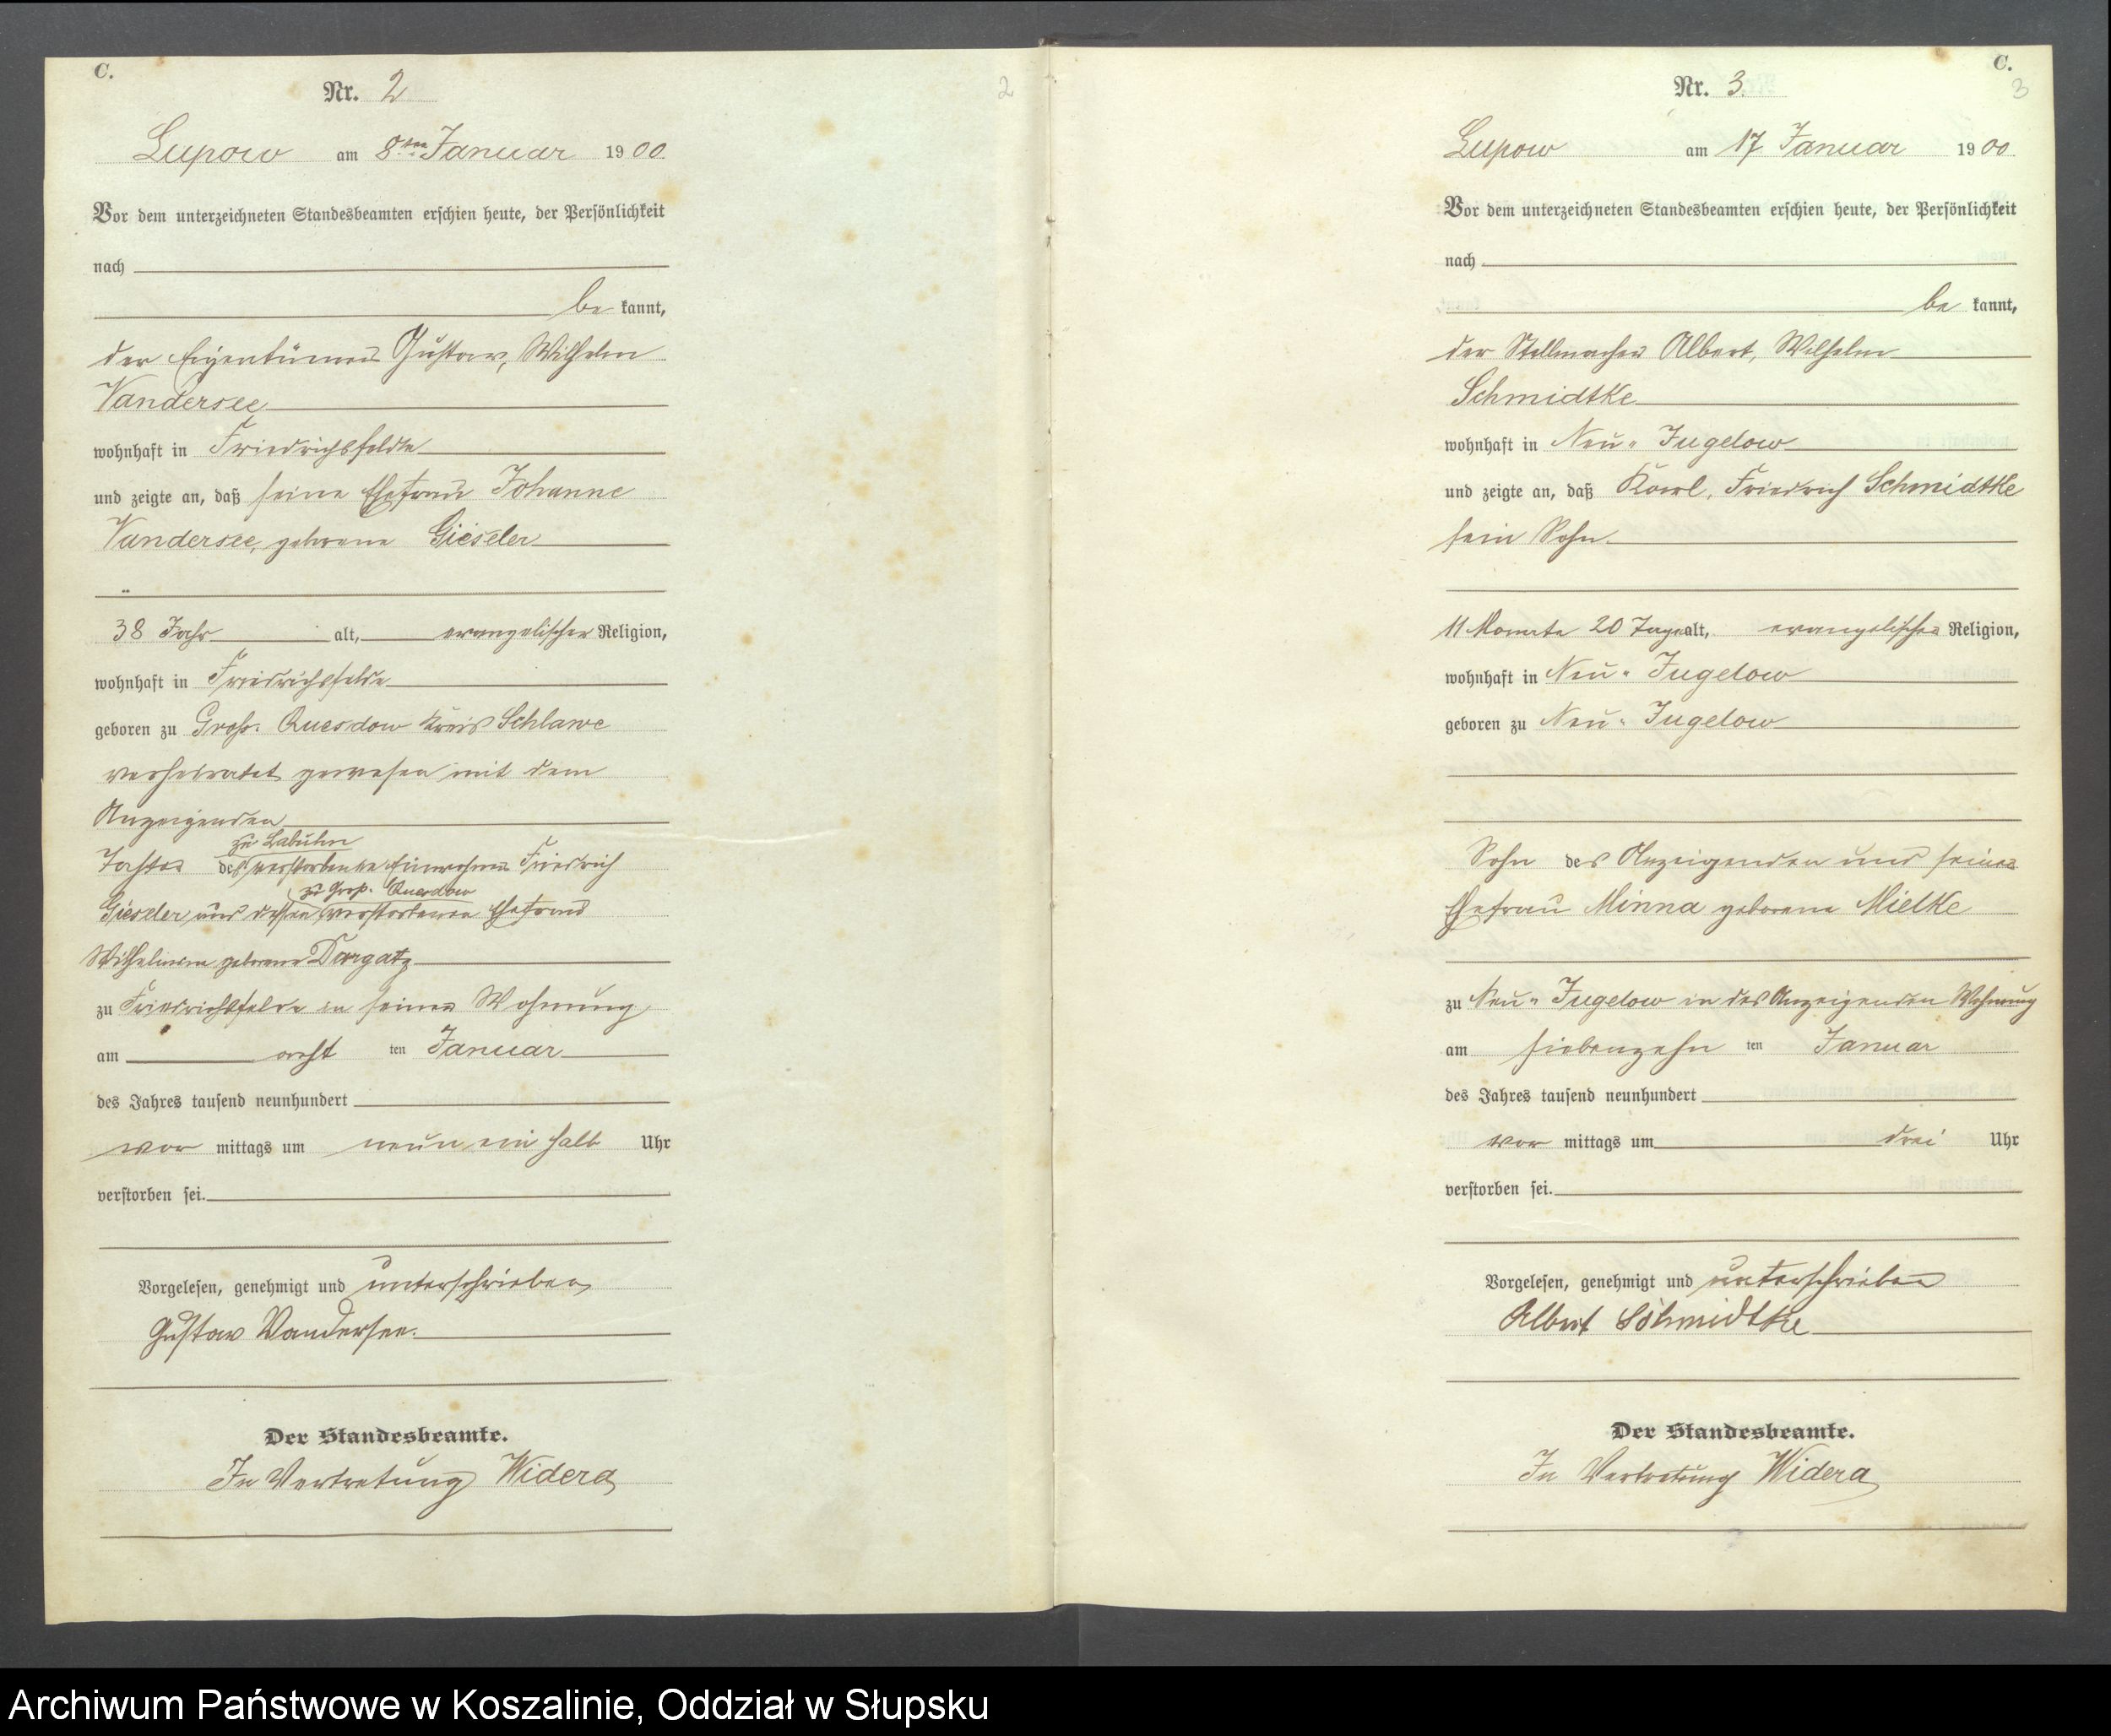 C.
Nr. 2
2
Lupow am 8ten Januar 1900
Vor dem unterzeichneten Standesbeamten erschien heute, der Persönlichkeit
nach
be kannt,
der Eigentümer Gustav, Wilhelm
Vandersee
wohnhaft in Friedrichsfelde
und zeigte an, daß seine Ehefrau Johanne
Vandersee, geborene Gieseler
38 Jahr alt, evangelischer Religion,
wohnhaft in Friedrichsfelde
geboren zu Groß-Quesdow Kreis Schlawe
verheiratet gewesen mit dem
Anzeigenden
zu Labuhn
Tochter des verstorbenen Einwohners Friedrich
zu Groß-Quesdow
Gieseler und dessen verstorbenen Ehefrau
Wilhelmine geborene Dargatz
zu Friedrichsfelde in seiner Wohnung
am acht ten Januar
des Jahres tausend neunhundert
vor mittags um neun ein halb Uhr
verstorben sei.
Vorgelesen, genehmigt und unterschrieben
Gustav Vandersee.
Der Standesbeamte.
In Vertretung Widera
C.
Nr. 3.
3
Lupow am 17 Januar 1900
Vor dem unterzeichneten Standesbeamten erschien heute, der Persönlichkeit
nach
be kannt,
der Stellmacher Albert, Wilhelm
Schmidtke
wohnhaft in Neu-Jugelow
und zeigte an, daß Karl, Friedrich Schmidtke
sein Sohn
11 Monate 20 Tage alt, evangelischer Religion,
wohnhaft in Neu-Jugelow
geboren zu Neu-Jugelow
Sohn des Anzeigenden und seiner
Ehefrau Minna geborene Mielke
zu Neu-Jugelow in des Anzeigenden Wohnung
am siebenzehn ten Januar
des Jahres tausend neunhundert
vor mittags um drei Uhr
verstorben sei.
Vorgelesen, genehmigt und unterschrieben
Albert Schmidtke
Der Standesbeamte.
In Vertretung Widera
Archiwum Państwowe w Koszalinie, Oddział w Słupsku